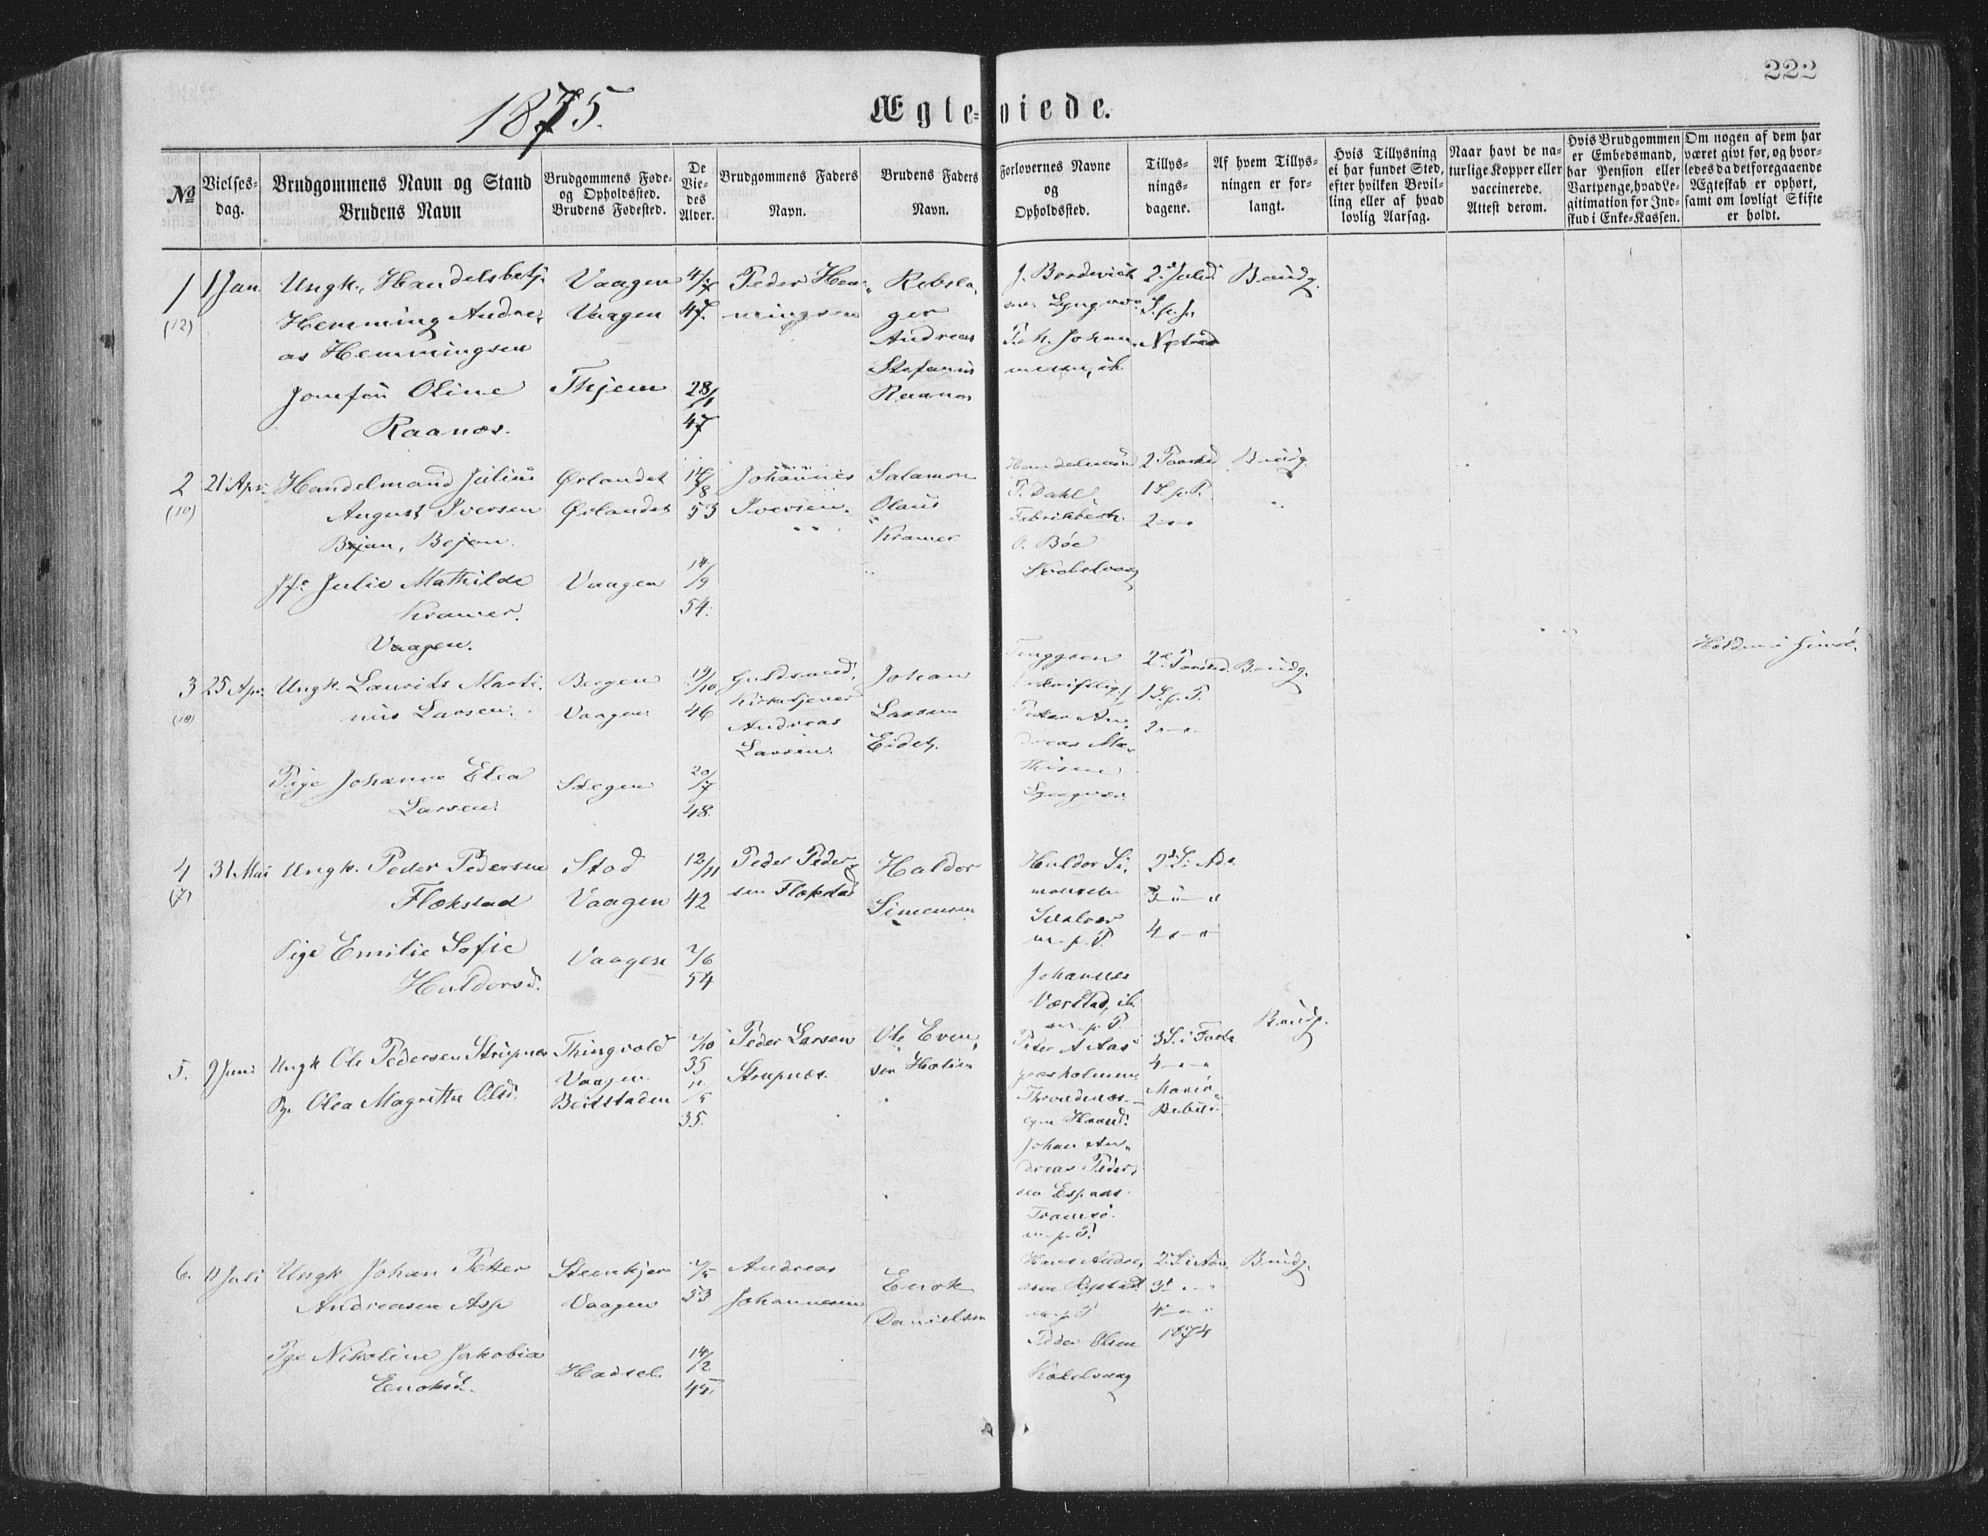 222
1875.
Ægte-viede.
№
Vielses-
dag.
Brudgommens Navn og Stand
Brudens Navn
Brudgommens Føde-
og Opholdssted.
Brudens Fødested.
De
Vie-
des
Alder.
Brudgommens Faders
Navn.
Brudens Faders
Navn.
Forlovernes Navne
og
Opholdssted.
Tillys-
nings-
dagene.
Af hvem Tillys-
ningen er for-
langt.
Hvis Tillysning
ei har fundet Sted,
efter hvilken Bevil-
ling eller af hvad
lovlig Aarsag.
Naar havt de na-
turlige Kopper eller
vaccinerede.
Attest derom.
Hvis Brudgommen
er Embedsmand,
har Pension eller
Vartpenge, hvad Le-
gitimation for Ind-
skud i Enke-Kassen.
Om nogen af dem har
været givt før, og hvor-
ledes da det foregaaende
Ægteskab er ophørt,
samt om lovligt Skifte
er holdt.
1
(12)
1 Jan
Ungk. Handelsbetj.
Hemming Andre-
as Hemmingsen
Jomfru Oline
Raanæs.
Vaagen
Vaagen
Thjem
47.
28/1
47
Peder Hem-
mingsen
Rebsla-
ger
Andreas
Stefanus
Raanæs
2 Juled
Brudg.
2
(10)
21 Apr.
Handelsmand Julius
August Iversen
Bejan, Bejan.
Jfr Julie Mathilde
Kramer.
Vaagen.
Ørlandet
Ørlandet
Vaagen
53
14/9
54.
Johannes
Iversen.
Salamon
Olaus
Kramer
Handelsmand
P. Dahl
O. Bøe
2 Paasked
1 S. p. P.
2 " "
Brudg.
3
25 Apr.
Ungk. Laurits Marti-
nus Larsen.
Pige Johanne Elea
Larsen.
Bergen
Vaagen
Stegen
19/10
46
20/7
48.
Guldsmed,
Kirketjener
Andreas
Larsen.
Johan
Larsen
Eidet.
skriftligt
Peter An-
dreas Ma-
thisen
2 Paasked.
1 S. p. P.
2 " "
Brudg.
4
(7)
31 Mai
Ungk. Peder Pedersen
Flekstad
Pige Emilie Sofie
Haldorsd.
Stod
Vaagen
Vaagen
12/11
42
2/6
54
Peder Peder-
sen Flekstad
Haldor
Simensen
Haldor Si-
mensen
Svolvær
m. p. P.
Johannes
m. p. P.
2 S. i Adv.
3 " "
4 " "
Brudg.
5.
9 Juni
Ungk Ole Pedersen Strupnæs
Pge Olea Magrethe Olsd.
Thingvold
Vaagen
Beitstaden
2/10
35
35.
Peder Larsen
Strupnæs.
Ole Even-
sen
Peter A Aas
Johan An-
dreas Peder-
sen
Tromsø.
m. p. P.
3 S. i Faste
4 " "
Mariæ
Bebud.
6.
11 Juli
Ungk Johan Petter
Andreasen Asp
Pge Nikoline Jakobia
Enoksd.
Steenkjær
Vaagen
Hadsel
53
14/2
45.
Andreas
Johannesen
Enok
Danielsen
Hans Andre-
m. p. P.
Peder Olsen
Kabelvaag
2 S. i Adv.
3 " "
4 " "
1874
Brudg.